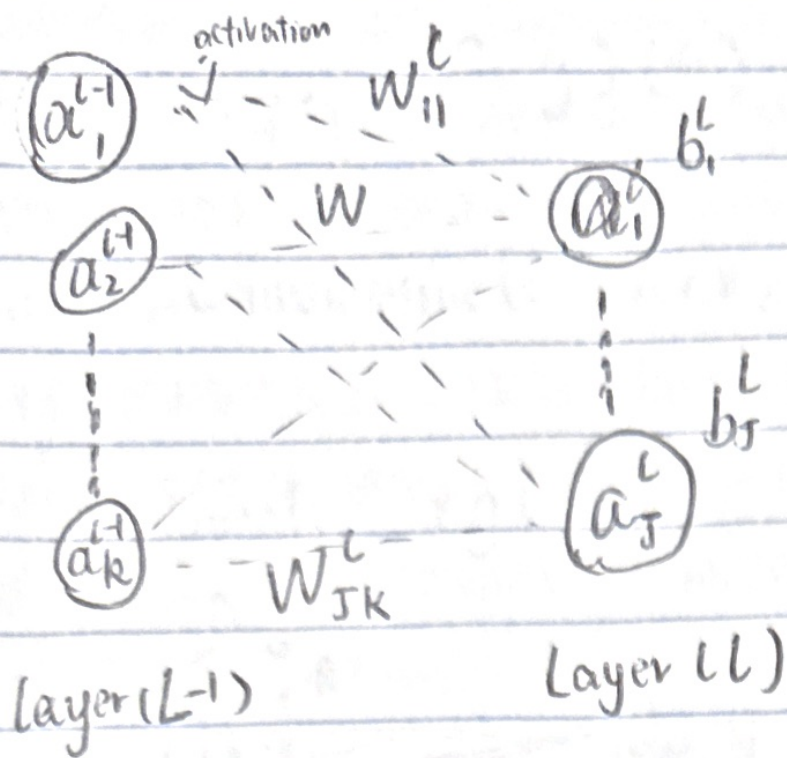 activation
a₁^{l-1}
W₁₁^l
b₁^l
a₁^l
W
a₂^{l-1}
b_J^l
a_J^l
a_k^{l-1}
W_{JK}^l
layer(L-1)
Layer(l)